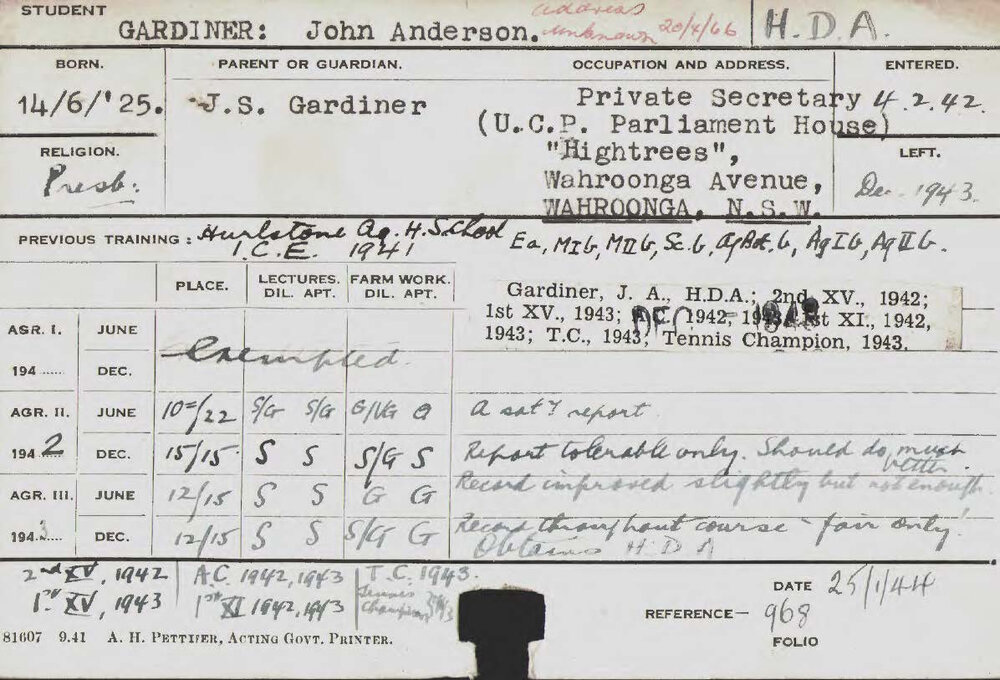 STUDENT
GARDINER: John Anderson. address unknown 20/4/66 H.D.A.
BORN. PARENT OR GUARDIAN. OCCUPATION AND ADDRESS. ENTERED.
14/6/'25. J.S. Gardiner Private Secretary 4.2.42.
(U.C.P. Parliament House)
RELIGION. "Hightrees", LEFT.
Presb: Wahroonga Avenue, Dec. 1943.
WAHROONGA, N.S.W.
PREVIOUS TRAINING: Hurlstone Ag. H. School
I.C.E. 1941 Ea, MI G, MII G, Sc. G, Ag Bot. G, Ag I G, Ag II G.
PLACE. LECTURES. DIL. APT. FARM WORK. DIL. APT.
Gardiner, J. A., H.D.A.; 2nd XV., 1942;
1st XV., 1943; A.C. 1942, 1943; 1st XI., 1942,
1943; T.C., 1943, Tennis Champion, 1943.
DEC 1943
AGR. I. JUNE
Exempted.
194...... DEC.
AGR. II. JUNE 10=/22 S/G S/G G/VG G A sat'y report.
1942 DEC. 15/15 S S S/G S Report tolerable only. Should do much better.
AGR. III. JUNE 12/15 S S G G Record improved slightly but not enough.
1943 DEC. 12/15 S S S/G G Record throughout course - 'fair only'.
Obtains H D A
2nd XV, 1942 A.C. 1942, 1943 T.C. 1943.
1st XV, 1943 1st XI 1942, 1943 Tennis Champion 1943
DATE 25/1/44
REFERENCE— 968
FOLIO
81607 9.41 A. H. PETTIFER, ACTING GOVT. PRINTER.